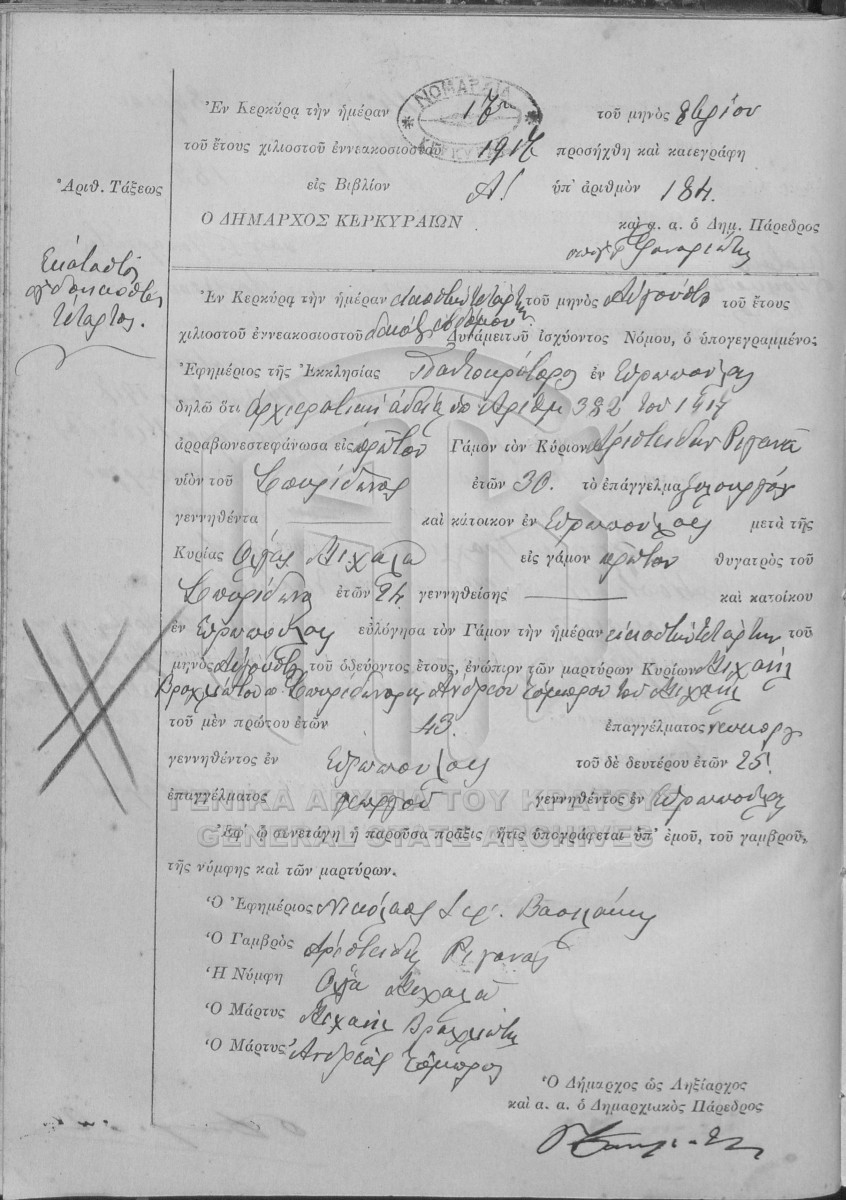 ΝΟΜΑΡΧΙΑ ΚΕΡΚΥΡΑΣ
Ἐν Κερκύρᾳ τὴν ἡμέραν 17 τοῦ μηνὸς 8βρίου
τοῦ ἔτους χιλιοστοῦ ἐννεακοσιοστοῦ 1917 προσήχθη καὶ κατεγράφη
Ἀριθ. Τάξεως
εἰς Βιβλίον Α! ὑπ' ἀριθμὸν 184.
Ο ΔΗΜΑΡΧΟΣ ΚΕΡΚΥΡΑΙΩΝ καὶ α. α. ὁ Δημ. Πάρεδρος
Ἑκατοστὸς
ὀγδοηκοστὸς
τέταρτος.
Ἐν Κερκύρᾳ τὴν ἡμέραν εἰκοστὴν τετάρτην τοῦ μηνὸς Αὐγούστου τοῦ ἔτους
χιλιοστοῦ ἐννεακοσιοστοῦ δεκάτου ἑβδόμου Δυνάμει τοῦ ἰσχύοντος Νόμου, ὁ ὑπογεγραμμένος
Ἐφημέριος τῆς Ἐκκλησίας Παντοκράτορος ἐν Εὐρωπούλοις
δηλῶ ὅτι ἀρχιερατικῇ ἀδείᾳ ὑπ' ἀριθμ 382 τοῦ 1917
ἀρραβωνεστεφάνωσα εἰς πρῶτον Γάμον τὸν Κύριον Ἀριστείδην Ριγανᾶ
υἱὸν τοῦ Σπυρίδωνος ἐτῶν 30. τὸ ἐπάγγελμα ξυλουργὸν
γεννηθέντα καὶ κάτοικον ἐν Εὐρωπούλοις μετὰ τῆς
Κυρίας Ὄλγας Μιχαλᾶ εἰς γάμον πρῶτον θυγατρὸς τοῦ
Σπυρίδωνος ἐτῶν 24. γεννηθείσης καὶ κατοίκου
ἐν Εὐρωπούλοις εὐλόγησα τὸν Γάμον τὴν ἡμέραν εἰκοστὴν τετάρτην τοῦ
μηνὸς Αὐγούστου τοῦ ὁδεύοντος ἔτους, ἐνώπιον τῶν μαρτύρων Κυρίων Μιχαὴλ
Βραχλιώτου Σπυρίδωνος κ Ἀνδρέου Τόμπρου τοῦ Μιχαὴλ
τοῦ μὲν πρώτου ἐτῶν 43. ἐπαγγέλματος γεωργ
γεννηθέντος ἐν Εὐρωπούλοις τοῦ δὲ δευτέρου ἐτῶν 25
ἐπαγγέλματος γεωργοῦ γεννηθέντος ἐν Εὐρωπούλοις
ΓΕΝΙΚΑ ΑΡΧΕΙΑ ΤΟΥ ΚΡΑΤΟΥΣ
GENERAL STATE ARCHIVES
Ἐφ' ᾧ συνετάγη ἡ παροῦσα πρᾶξις ἥτις ὑπογράφεται ὑπ' ἐμοῦ, τοῦ γαμβροῦ,
τῆς νύμφης καὶ τῶν μαρτύρων.
Ὁ Ἐφημέριος Νικόλαος Βασιλάκης
Ὁ Γαμβρὸς Ἀριστείδης Ριγανας
Ἡ Νύμφη Ολγα Μιχαλᾶ
Ὁ Μάρτυς Μιχαὴλ Βραχλιώτης
Ὁ Μάρτυς Ἀνδρέας Τόμπρος
Ὁ Δήμαρχος ὡς Ληξίαρχος
καὶ α. α. ὁ Δημαρχιακὸς Πάρεδρος